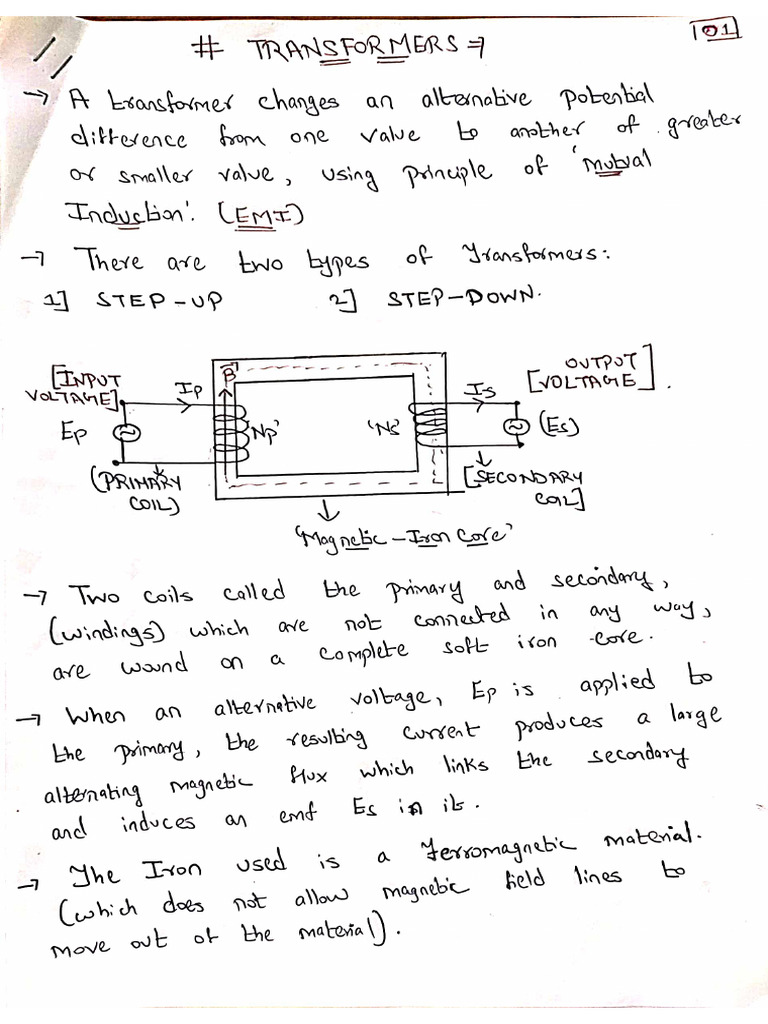 01
# TRANSFORMERS ⇒
→ A transformer changes an alternative potential
difference from one value to another of greater
or smaller value, using principle of 'Mutual
Induction'. (EMI)
→ There are two types of Transformers:
1] STEP-UP 2] STEP-DOWN.
[INPUT VOLTAGE]
Ip
B
Is
OUTPUT
[VOLTAGE].
Ep
'Np'
'Ns'
(Es)
(PRIMARY
COIL)
[SECONDARY
COIL]
'Magnetic-Iron Core'
→ Two coils called the primary and secondary,
(windings) which are not connected in any way,
are wound on a complete soft iron core.
→ When an alternative voltage, Ep is applied to
the primary, the resulting current produces a large
alternating magnetic flux which links the secondary
and induces an emf Es in it.
→ The Iron used is a ferromagnetic material.
(which does not allow magnetic field lines to
move out of the material).